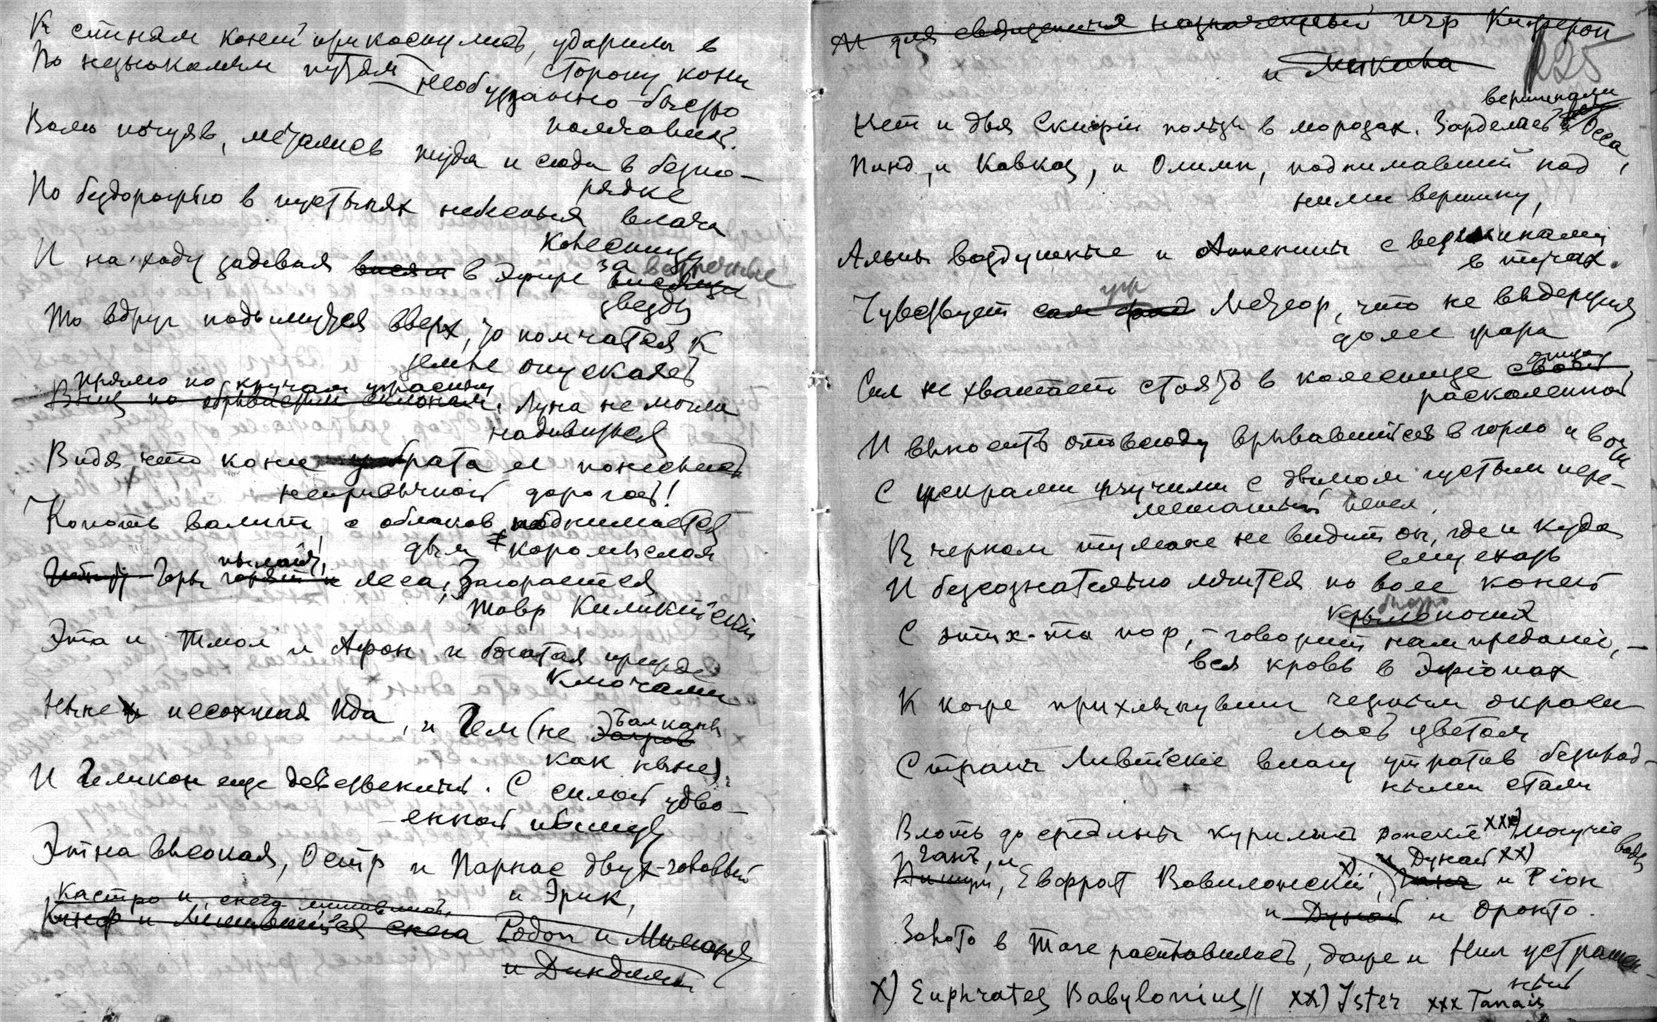 К спинам коней прикоснулись, ударили в
сторону кони
По незнакомым путям необузданно-быстро
помчавшись.
Волю почуяв, метались туда и сюда в безпо-
рядке
По бездорожью в пустынях небесных влача
колесницу
И на ходу задевая висят в эфире за встречные
звезды
То вдруг подымутся вверх, то помчатся к
земле опускаясь
прямо по кручам ужасным
Вниз по обрывистым склонам. Луна не могла
надивиться
Видя, что кони брата ея понеслись
непривычной дорогой!
Копоть валит с облаков, поднимается
дым коромыслом
пылают,
Горы горят и леса, Загорается
Тавр Киликийский
Эта и Тмол и Афон и богатая прежде
ключами
Ныне иссохшая Ида, и Гем (не Балканы
как ныне)
И Геликон еще девственный. С силой удво-
енной пышет
Этна высокая, Остр и Парнас двух-головый
и Эрик,
Кастро и, снега лишившись,
Кинф и лишившийся снега Родоп и Мимант
и Диндима
И для священия назначенный пур Киферон
и Микала
225
вершинами
Нет и для Скифии пользы в морозах. Зарделась Осса,
Пинд, и Кавказ, и Олимп, поднимавший над
ними вершину,
Альпы воздушные и Апеннин с вершинами
в тучах.
Чувствует уж Метеор, что не выдержит
доле жара
Сил не хватает стоять в колеснице своей
раскаленной
И выносить отовсюду врывавшийся в горло и в очи
С искрами жгучими с дымом густым пере-
мешанный пепел.
В черном тумане не видит он, где и куда
ему ехать
И безсознательно мчится по воле коней
быстро
крылоногих
С этих-то пор, - говорит нам преданье, -
вся кровь в Эфиопах
К коже прихлынувши черным окраси-
лась цветом
Страны Ливийские влагу утратив безвод-
ными стали
Вплоть до средины курились Донские xxx) могучие воды
Ганг, и и Дунай xx)
Евфрат Вавилонский x), и Фион
и Дунай и Оронто.
Золото в Таге расплавилось, даже и Нил устрашен-
ный
x) Euphrates Babylonius // xx) Ister xxx Tanais